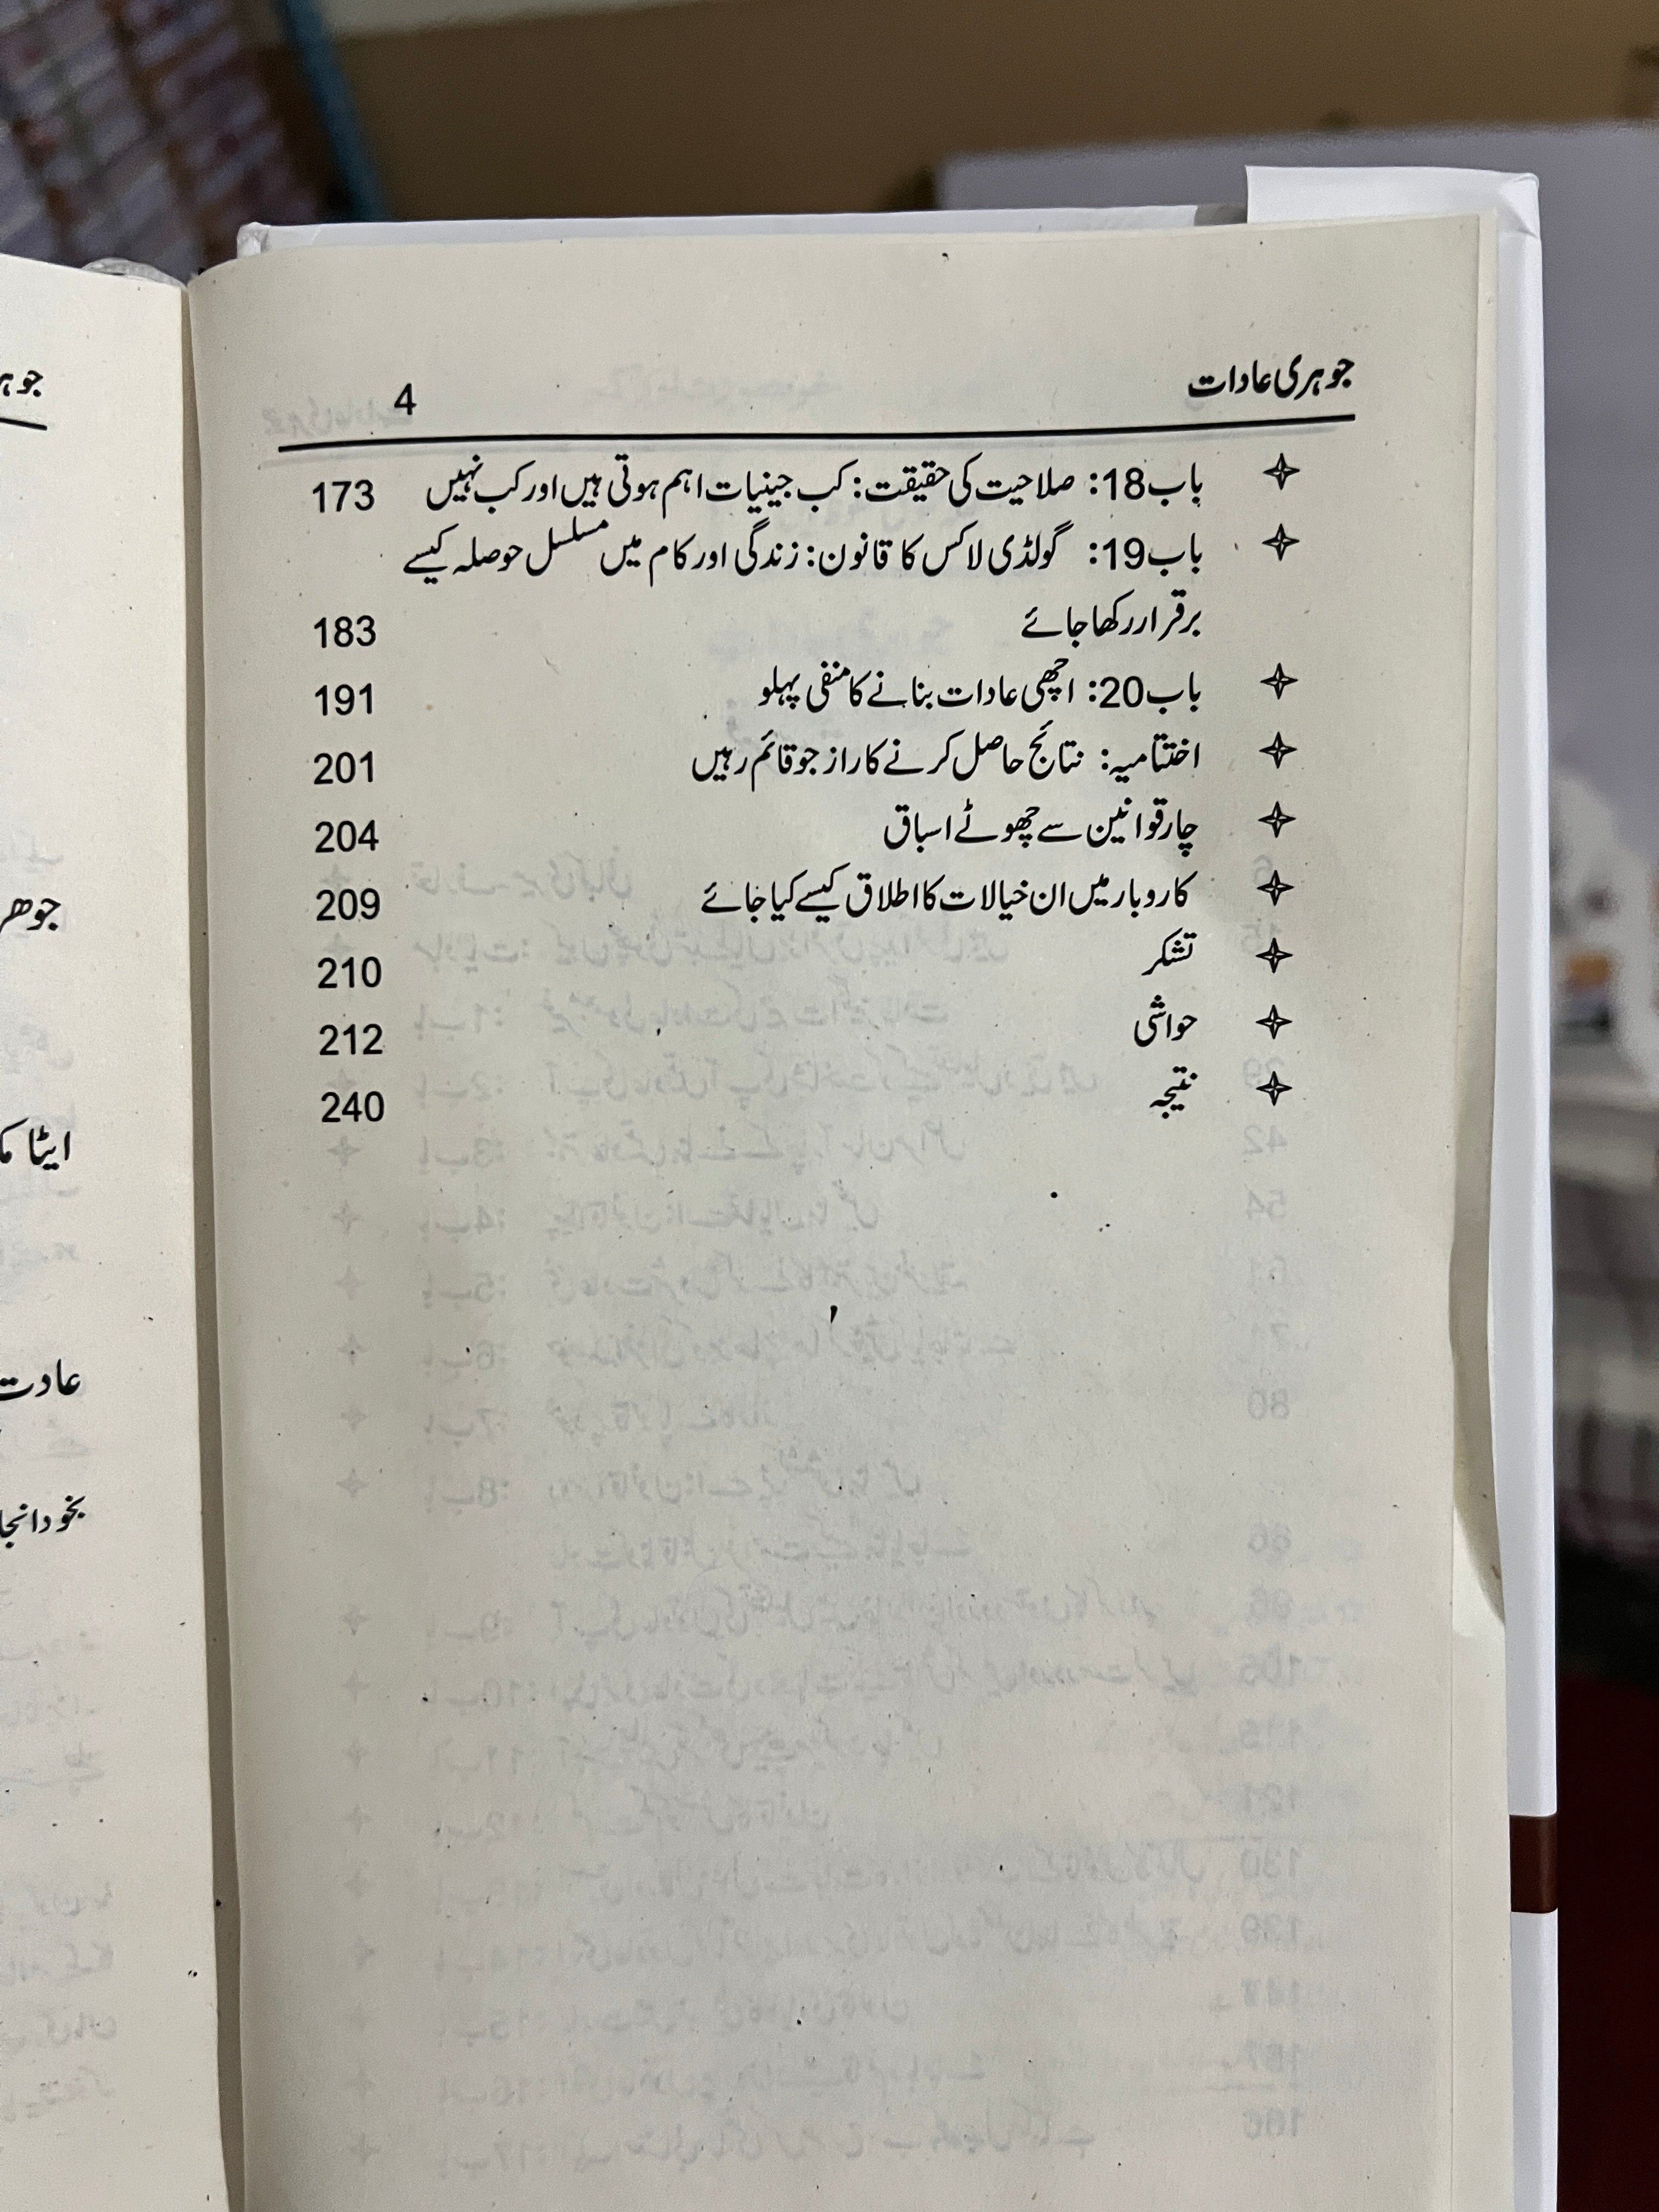 جوہری عادات 4
باب18: صلاحیت کی حقیقت: کب جینیات اہم ہوتی ہیں اور کب نہیں 173
باب19: گولڈی لاکس کا قانون: زندگی اور کام میں مسلسل حوصلہ کیسے
برقرار رکھا جائے 183
باب20: اچھی عادات بنانے کا منفی پہلو 191
اختتامیہ: نتائج حاصل کرنے کا راز جو قائم رہیں 201
چار قوانین سے چھوٹے اسباق 204
کاروبار میں ان خیالات کا اطلاق کیسے کیا جائے 209
تشکر 210
حواشی 212
نتیجہ 240
جوھر
ایٹا
عادت